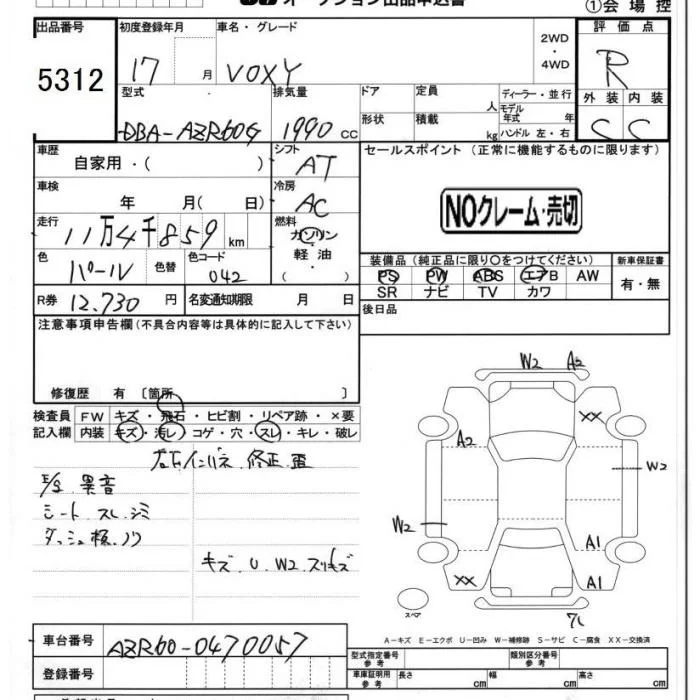 オークション出品申込書
①会場控
出品番号 初度登録年月 車名・グレード 2WD ・ 4WD 評価点
5312 17 月 VOXY R
型式 排気量 ドア 定員 人 ディーラー・並行 外装 内装
DBA-AZR60G 1990 cc 形状 積載 kg モデル年式 年 ハンドル 左・右 C C
車歴 自家用・( ) シフト AT セールスポイント (正常に機能するものに限ります)
車検 年 月( 日) 冷房 AC
NOクレーム・売切
走行 11万4千859 km 燃料 ガソリン・軽油・( )
色 パール 色替 色コード 042
装備品 (純正品に限り○をつけてください) 新車保証書
PS PW ABS エアB AW 有・無
SR ナビ TV カワ
R券 12,730 円 名変通知期限 月 日 後日品
注意事項申告欄(不具合内容等は具体的に記入して下さい)
修復歴 有 〔箇所 〕
検査員記入欄 FW キズ・飛石・ヒビ割・リペア跡・×要
内装 キズ・汚レ・コゲ・穴・スレ・キレ・破レ
左右インパネ 修正 歪
E/g 異音
シート スレ.シミ
ダッシュ 板.ノリ
キズ. U. W2. スリキズ
W2 A2
XX
A2
W2
W2
A1
XX A1
スペア
A-キズ E-エクボ U-凹み W-補修跡 S-サビ C-腐食 XX-交換済
車台番号 AZR60-0470057
型式指定番号 参考 類別区分番号 参考
登録番号
車庫証明用 参考 長さ cm 幅 cm 高さ cm